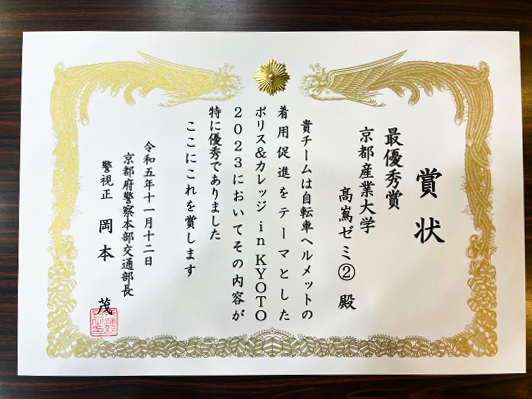 賞状
最優秀賞
京都産業大学
高嶌ゼミ② 殿
貴チームは自転車ヘルメットの
着用促進をテーマとした
ポリス&カレッジin KYOTO
2023においてその内容が
特に優秀でありました
ここにこれを賞します
令和五年十一月十二日
京都府警察本部交通部長
警視正 岡本 茂